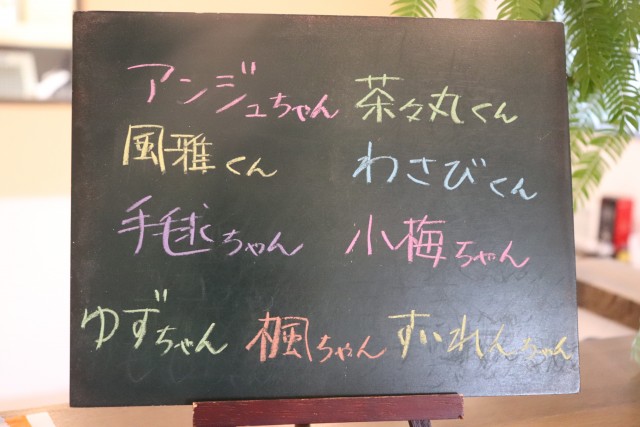 アンジュちゃん 茶々丸くん
風雅くん わさびくん
手毬ちゃん 小梅ちゃん
ゆずちゃん 楓ちゃん すいれんちゃん